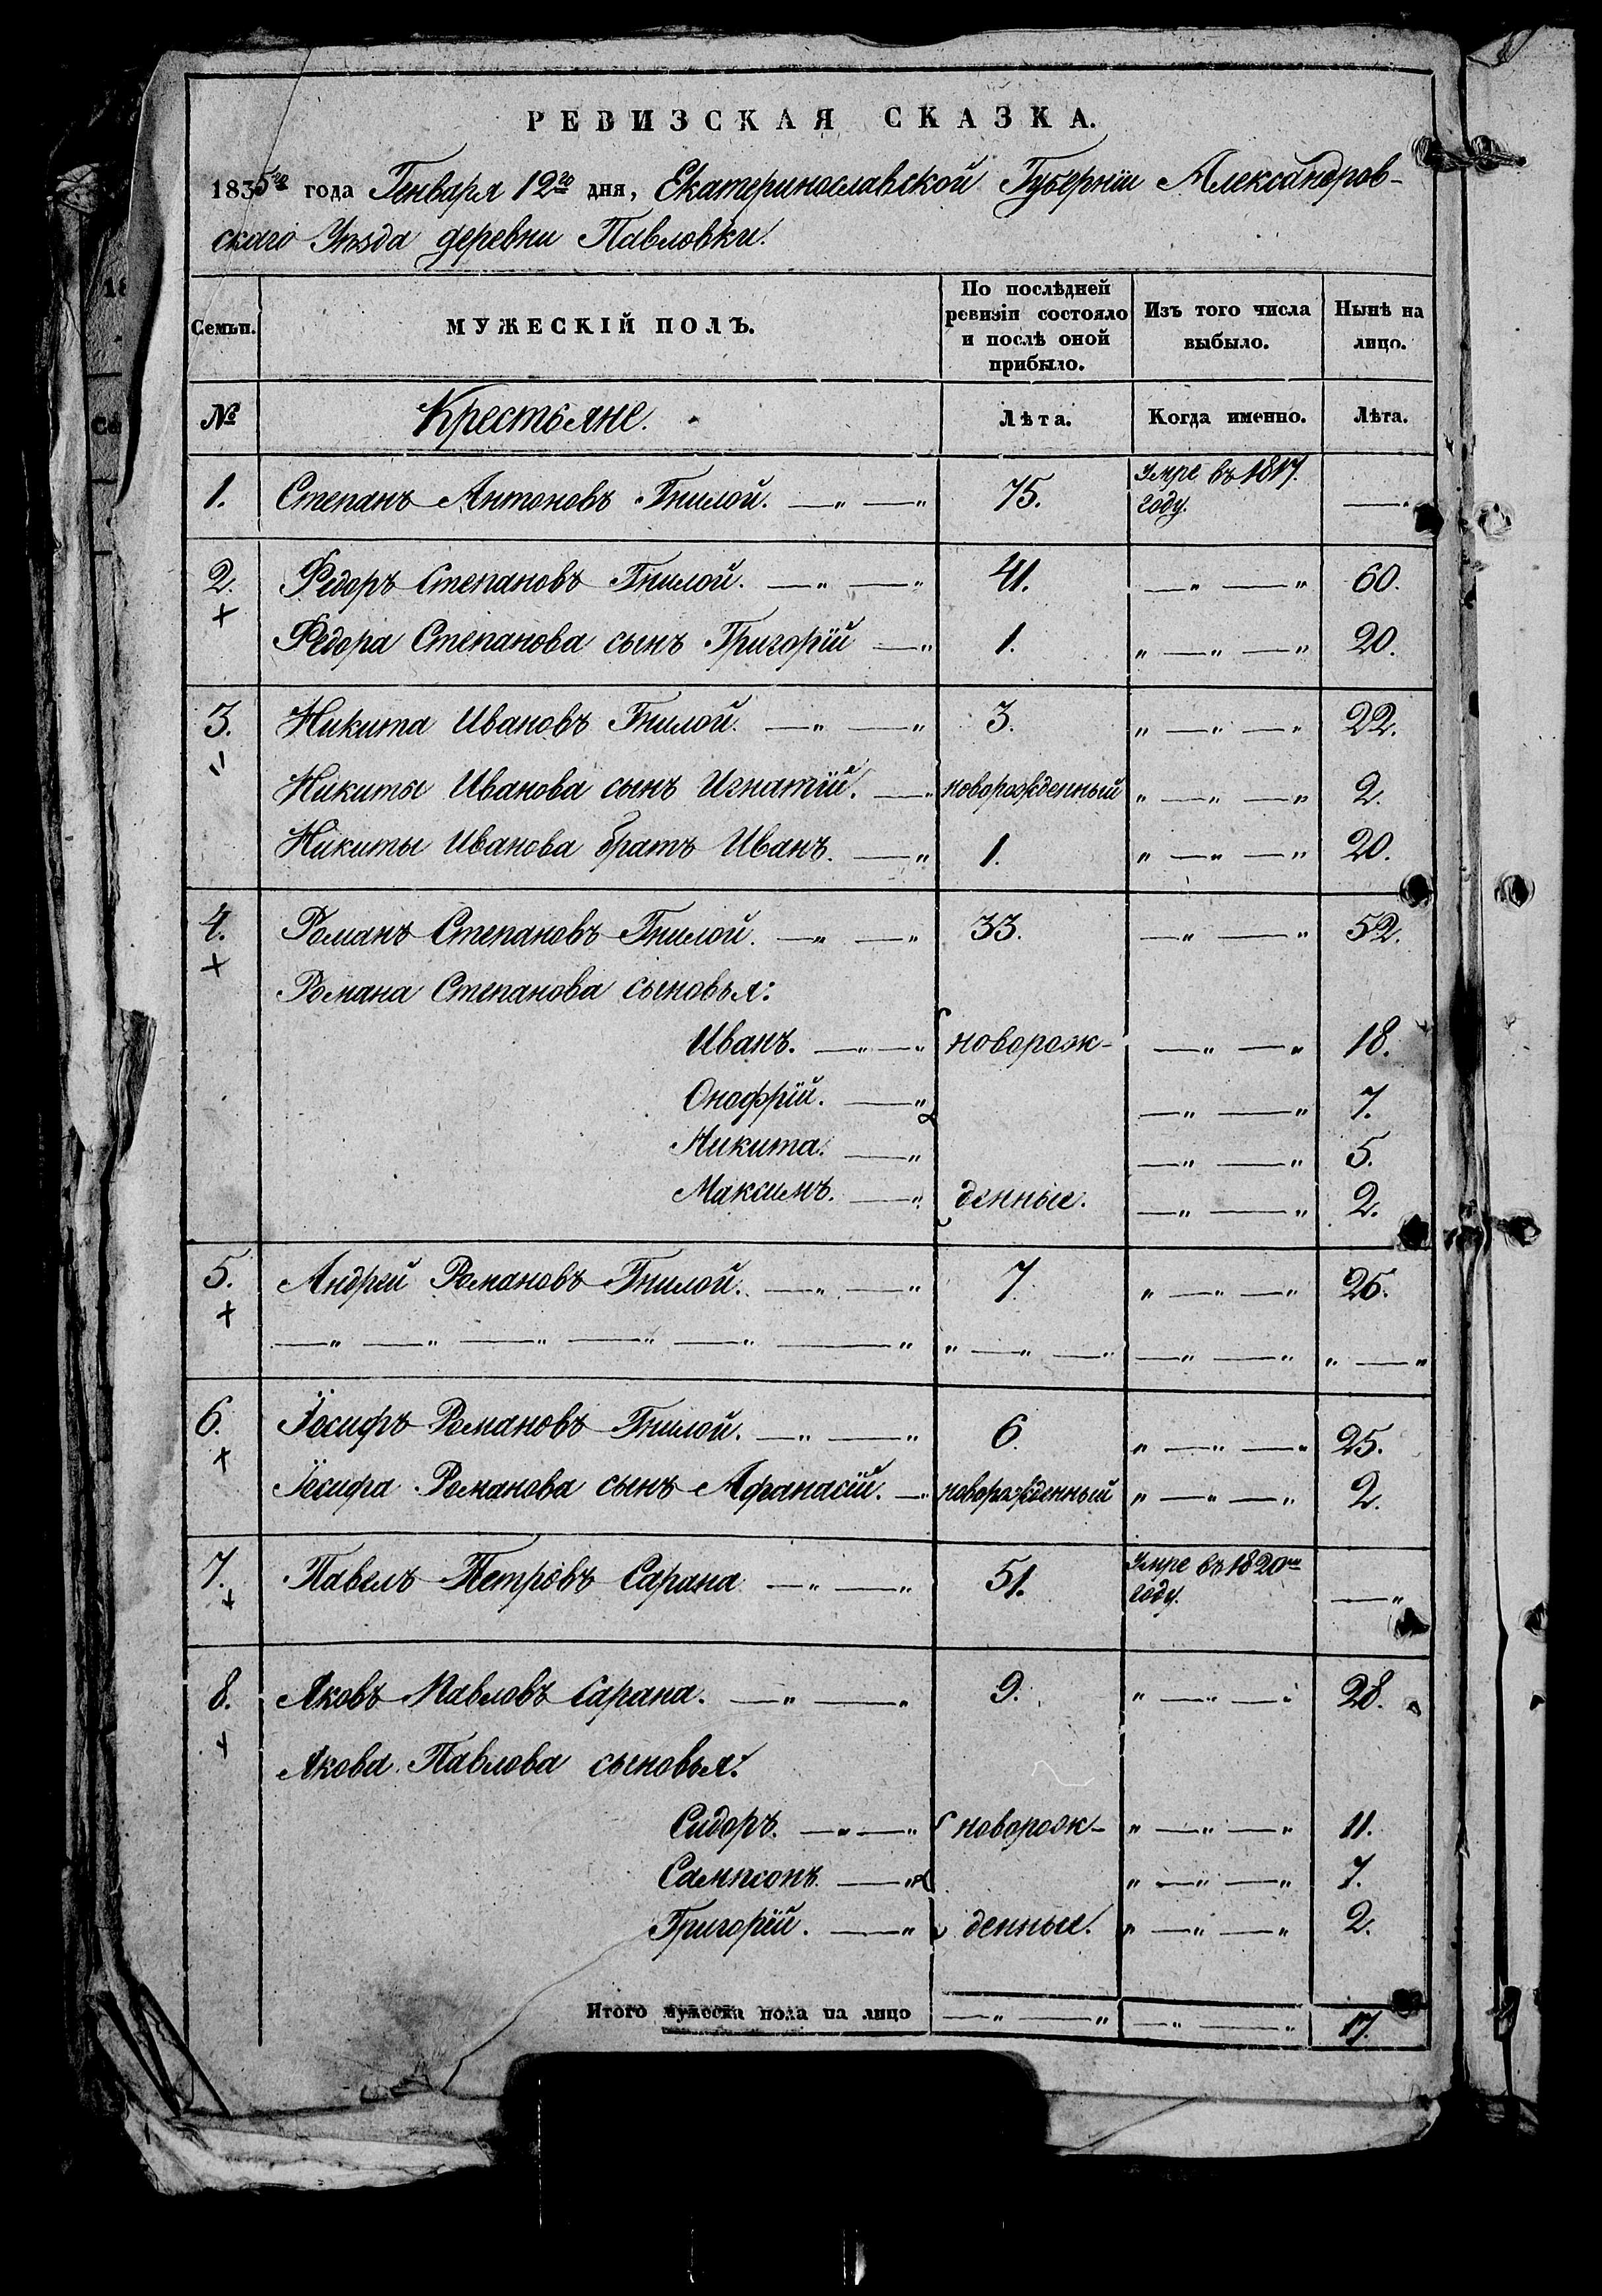 РЕВИЗСКАЯ СКАЗКА.
1835го года Генваря 12го дня, Екатеринославской Губерніи Александров-
скаго Уѣзда деревни Павловки.
Семьи. МУЖЕСКІЙ ПОЛЪ. По послѣдней ревизіи состояло и послѣ оной прибыло. Изъ того числа выбыло. Нынѣ на лицо.
№ Крестьяне. Лѣта. Когда именно. Лѣта.
1. Степанъ Антоновъ Гнилой. —„ —„ 75. Умре въ 1817. году. —„
2. Федоръ Степановъ Гнилой. —„ —„ 41. —„ —„ 60.
+ Федора Степанова сынъ Григорій —„ 1. „ —„ —„ 20.
3. Никита Ивановъ Гнилой. —„ —„ 3. „ —„ —„ 22.
„ Никиты Иванова сынъ Игнатій. —„ новорожденный „ —„ —„ 2.
Никиты Иванова братъ Иванъ. —„ 1. „ —„ —„ 20.
4. Романъ Степановъ Гнилой. —„ —„ 33. —„ —„ 52.
+ Романа Степанова сыновья:
Иванъ. —„ —„ новорож- —„ —„ 18.
Онофрій. —„ —„ —„ 7.
Никита. —„ —„ —„ 5.
Максимъ. —„ денные. —„ —„ 2.
5. Андрей Романовъ Гнилой. —„ —„ 7. „ —„ —„ 26.
+ —„ —„ —„ —„ —„ —„ „ —„ —„ —„ —„ „ —„
6. Іосифъ Романовъ Гнилой. —„ —„ 6. „ —„ —„ 25.
+ Іосифа Романова сынъ Афанасій. —„ новорожденный „ —„ —„ 2.
7. Павелъ Петровъ Сарана —„ —„ 51. Умре въ 1820м году. —„
+
8. Яковъ Павловъ Сарана. —„ —„ 9. „ —„ —„ 28.
+ Якова Павлова сыновья:
Сидоръ. —„ —„ новорож- „ —„ —„ 11.
Сампсонъ. —„ „ —„ —„ 7.
Григорій. —„ денные. „ —„ —„ 2.
Итого мужеска пола на лицо —„ —„ —„ —„ 17.